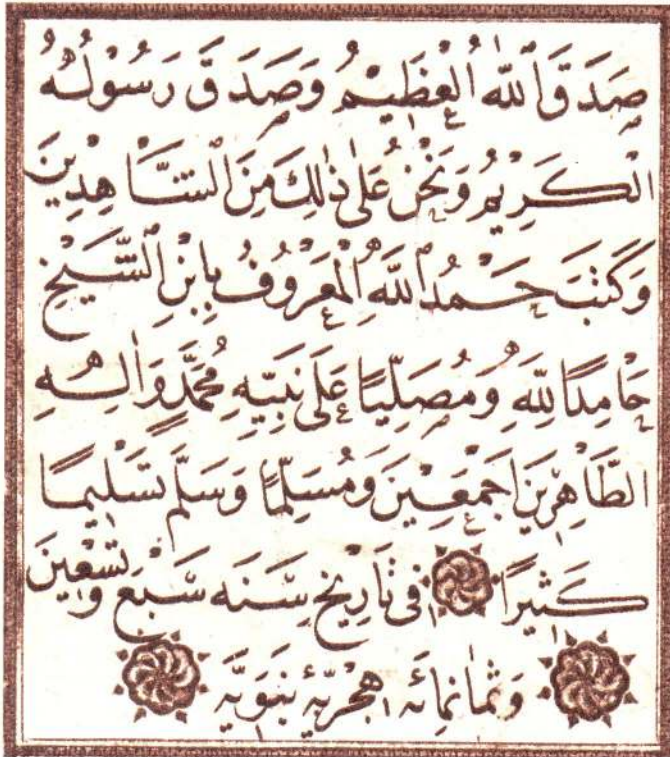 صَدَقَ ٱللهُ الْعَظِيْمُ وَصَدَقَ رَسُوْلُهُ
الْكَرِيْمُ وَنَحْنُ عَلٰى ذٰلِكَ مِنَ الشَّاهِدِيْنَ
وَكَتَبَ حَمْدُ ٱللهِ الْمَعْرُوْفُ بِابْنِ الشَّيْخِ
حَامِدًا لِلّٰهِ وَمُصَلِّيًا عَلٰى نَبِيِّهِ مُحَمَّدٍ وَاٰلِهِ
الطَّاهِرِيْنَ اَجْمَعِيْنَ وَمُسَلِّمًا وَسَلَّمَ تَسْلِيْمًا
كَثِيْرًا فى تَارِيْخِ سَنَه سَبْع وَتِسْعِيْنَ
وَثَمَانمِائَه هِجْرِيَّه نَبَوِيَّه